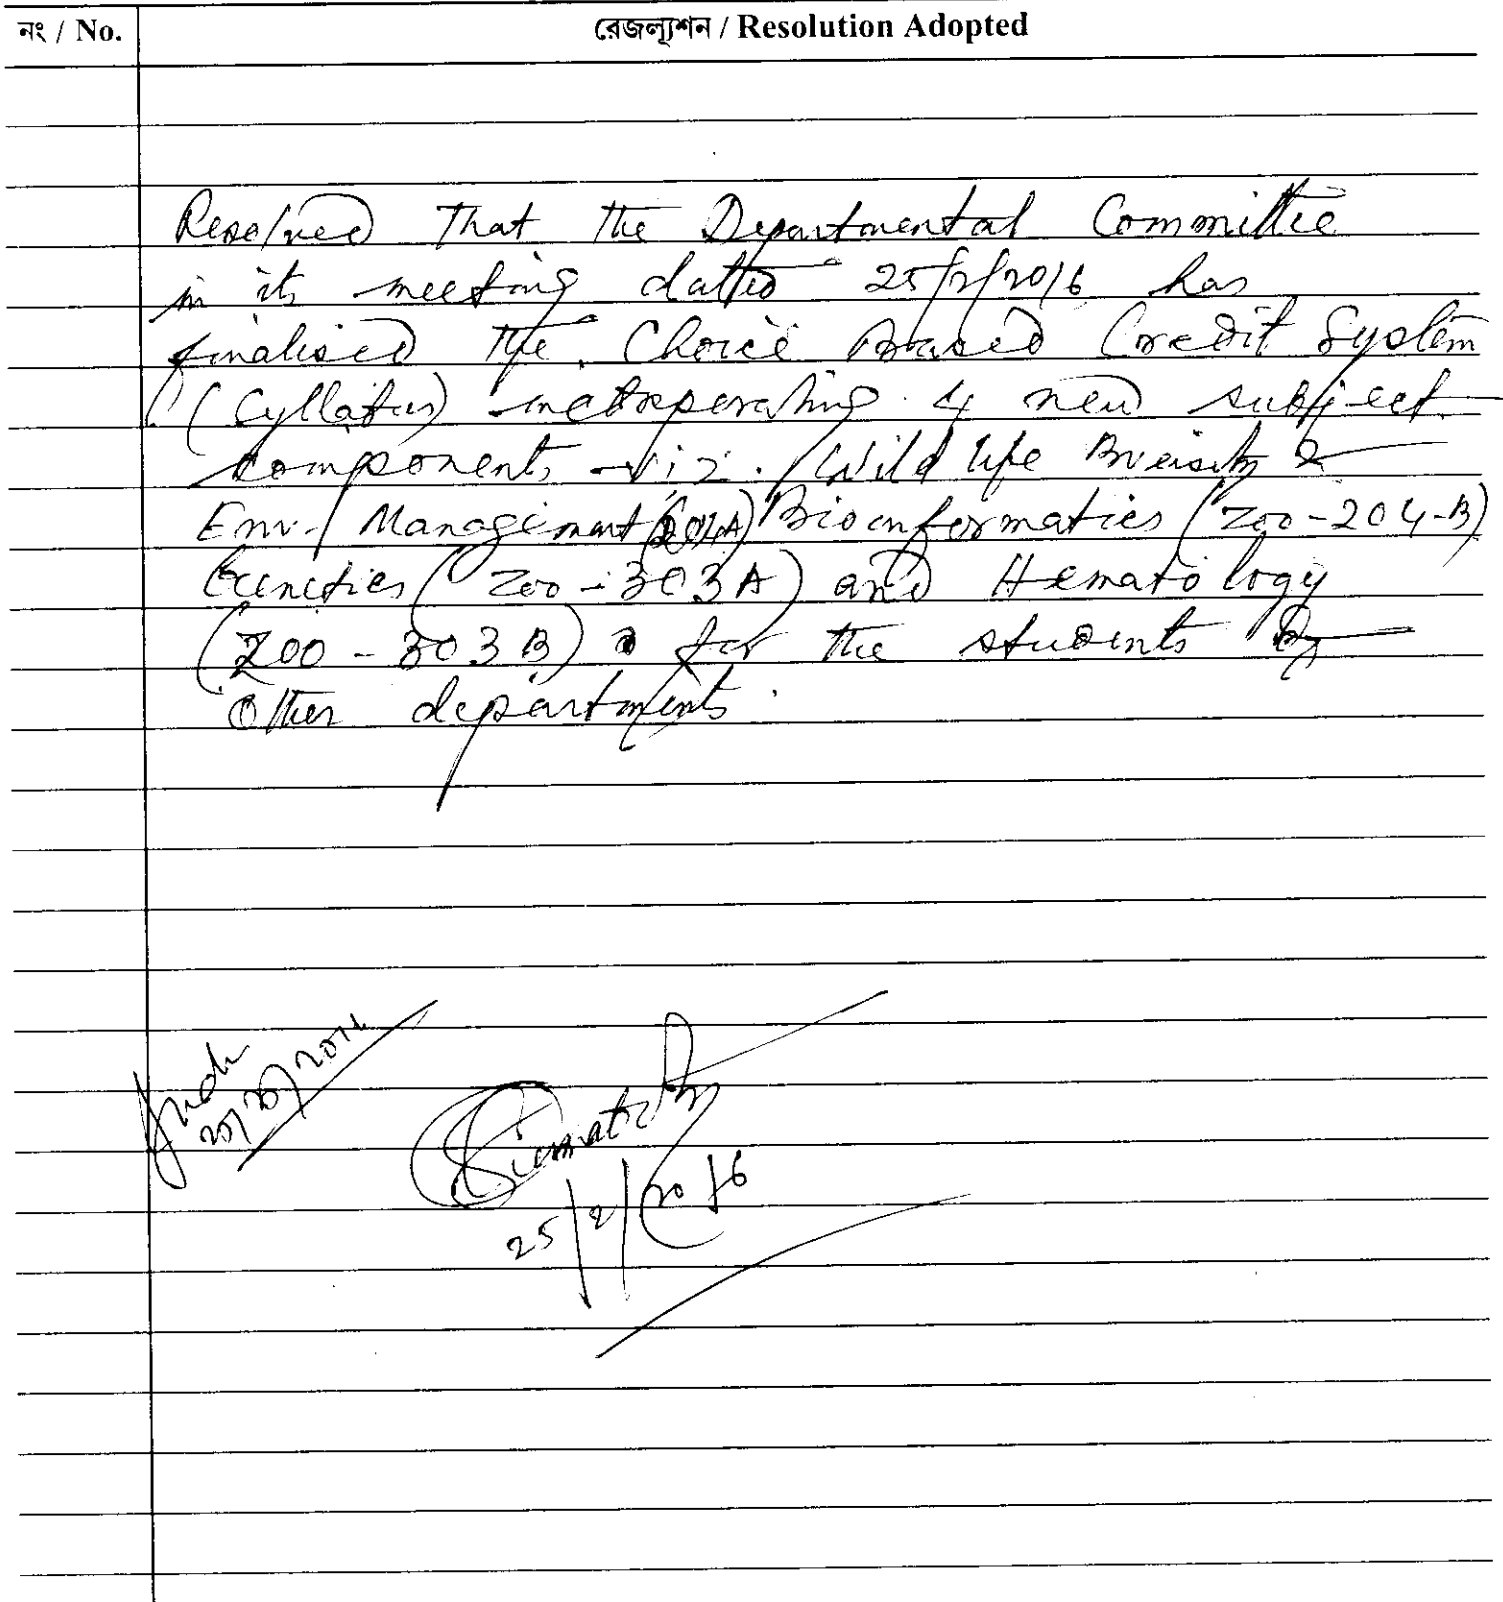 নং / No.
রেজল্যুশন / Resolution Adopted
Resolved that the Departmental Committee
in its meeting datted 25/2/2016 has
finalised the Choice Based Credit System
(Cyllabus) incorporating 4 new subject
components viz. Wild life Diversity &
Env. Management (204A) Bioinformatics (Zoo-204-B)
Genetics (Zoo-303A) and Hematology
(Zoo-303B) for the students of
Other departments.
25/2/2016